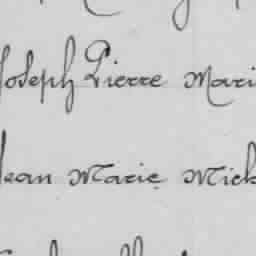 Joseph Pierre Mari
Jean Marie Mich